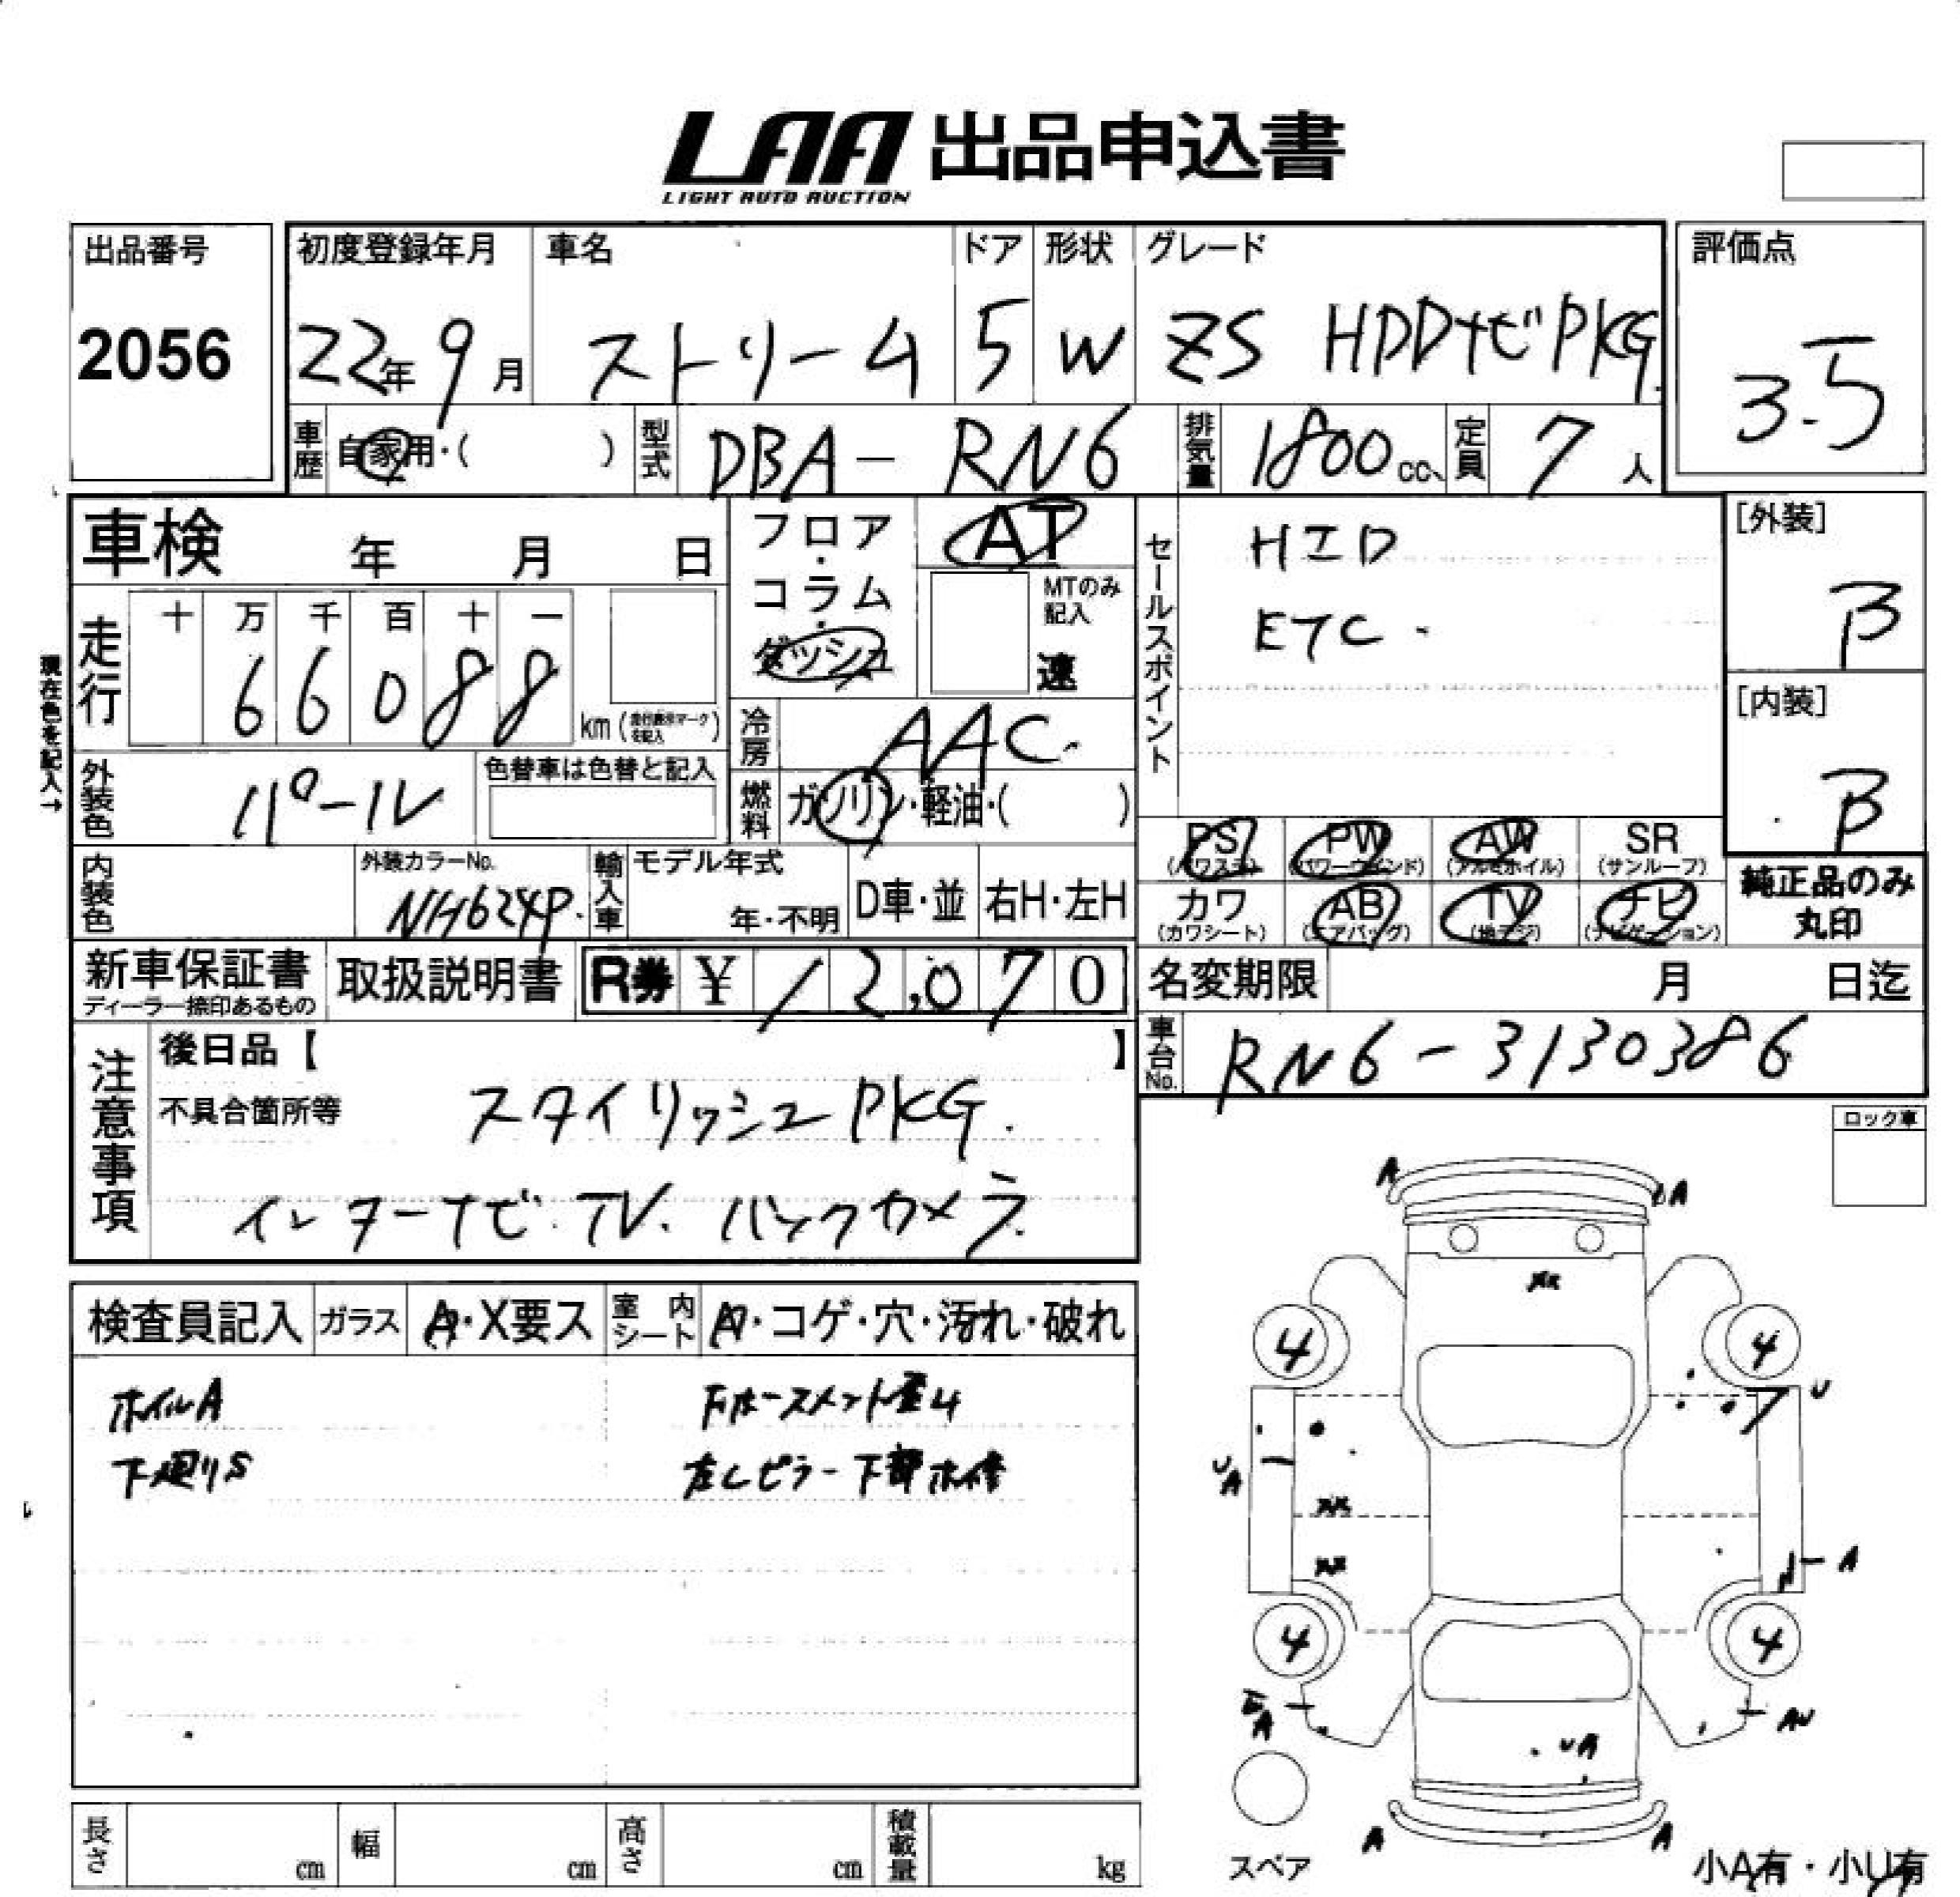 LAA 出品申込書
LIGHT AUTO AUCTION
出品番号 初度登録年月 車名 ドア 形状 グレード 評価点
2056 22年 9月 ストリーム 5 W ZS HDDナビPKG 3.5
車歴 自家用・( ) 型式 DBA-RN6 排気量 1800cc、 定員 7人
車検 年 月 日
フロア・コラム・ダッシュ
AT
MTのみ記入
速
セールスポイント
HID
ETC.
[外装]
B
[内装]
B
現在色を記入→
走行 十 万 千 百 十 一
66088
km (走行表示マークを記入)
冷房 AAC
外装色 パール 色替車は色替と記入
燃料 ガソリン・軽油・( )
PS PW AW SR
(パワステ) (パワーウインド) (アルミホイル) (サンルーフ)
カワ AB TV ナビ
(カワシート) (エアバッグ) (地デジ) (ナビゲーション)
純正品のみ
丸印
内装色 外装カラーNo. NH624P. 輸入車 モデル年式 年・不明 D車・並 右H・左H
新車保証書 取扱説明書 R券 ¥ 12,070
ディーラー捺印あるもの
名変期限 月 日迄
車台No. RN6-3130386
注意事項
後日品【 】
不具合箇所等 スタイリッシュPKG.
インターナビ. TV. バックカメラ
ロック車
検査員記入 ガラス A・X要ス 室内シート A・コゲ・穴・汚れ・破れ
ホイルA
下廻りS
左Cピラー下部ホ修
A A
XX
4 4
U
UA
XX
XX
A
4 4
A AU
UA
A A
スペア
小A有・小U有
長さ cm 幅 cm 高さ cm 積載量 kg